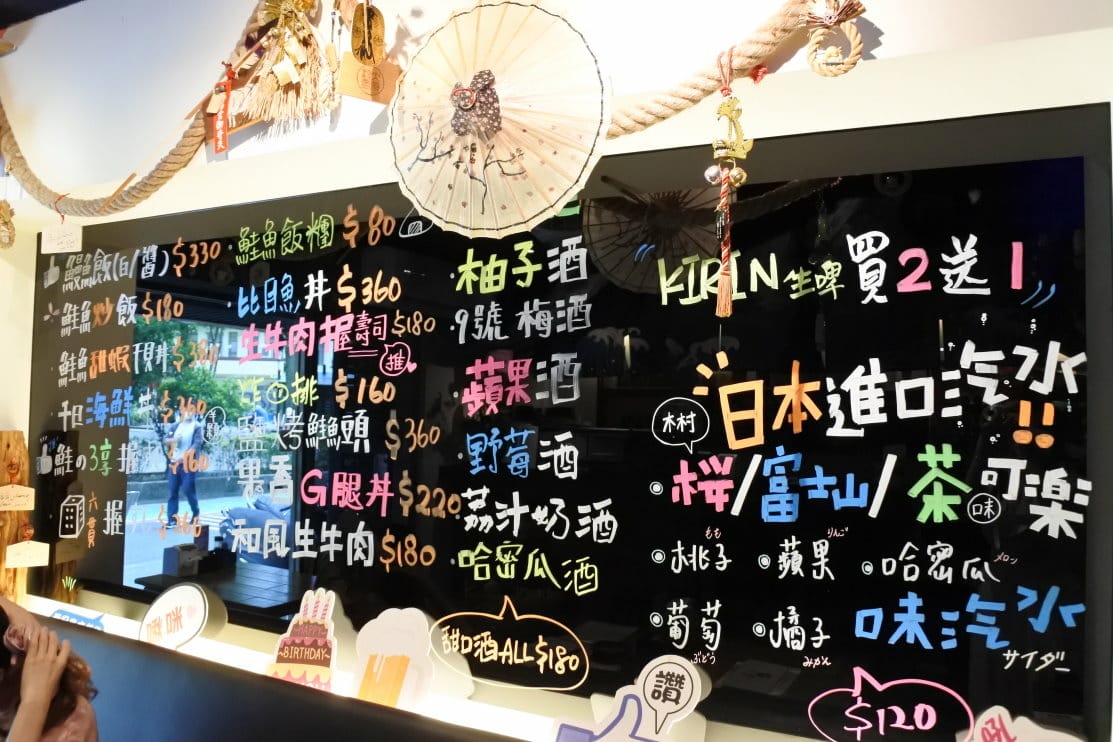 鰻魚飯(白/醬)$330
鮭魚炒飯$180
鮭魚甜蝦干貝丼
干貝海鮮丼$360
鮭の3享握$160
六貫握
鮭魚飯糰$80
比目魚丼$360
生牛肉握壽司$180
推
排$160
鹽烤鰤魚頭$360
果香G腿丼$220
和風生牛肉$180
柚子酒
9號梅酒
蘋果酒
野莓酒
荔汁奶酒
哈密瓜酒
甜口酒ALL$180
KIRIN生啤買2送1
日本進口汽水!!
木村
桜/富士山/茶可楽
味
もも
桃子
りんご
蘋果
メロン
哈密瓜
葡萄
ぶどう
橘子
みかん
味汽水
サイダー
$120
HAPPY
BIRTHDAY
讚